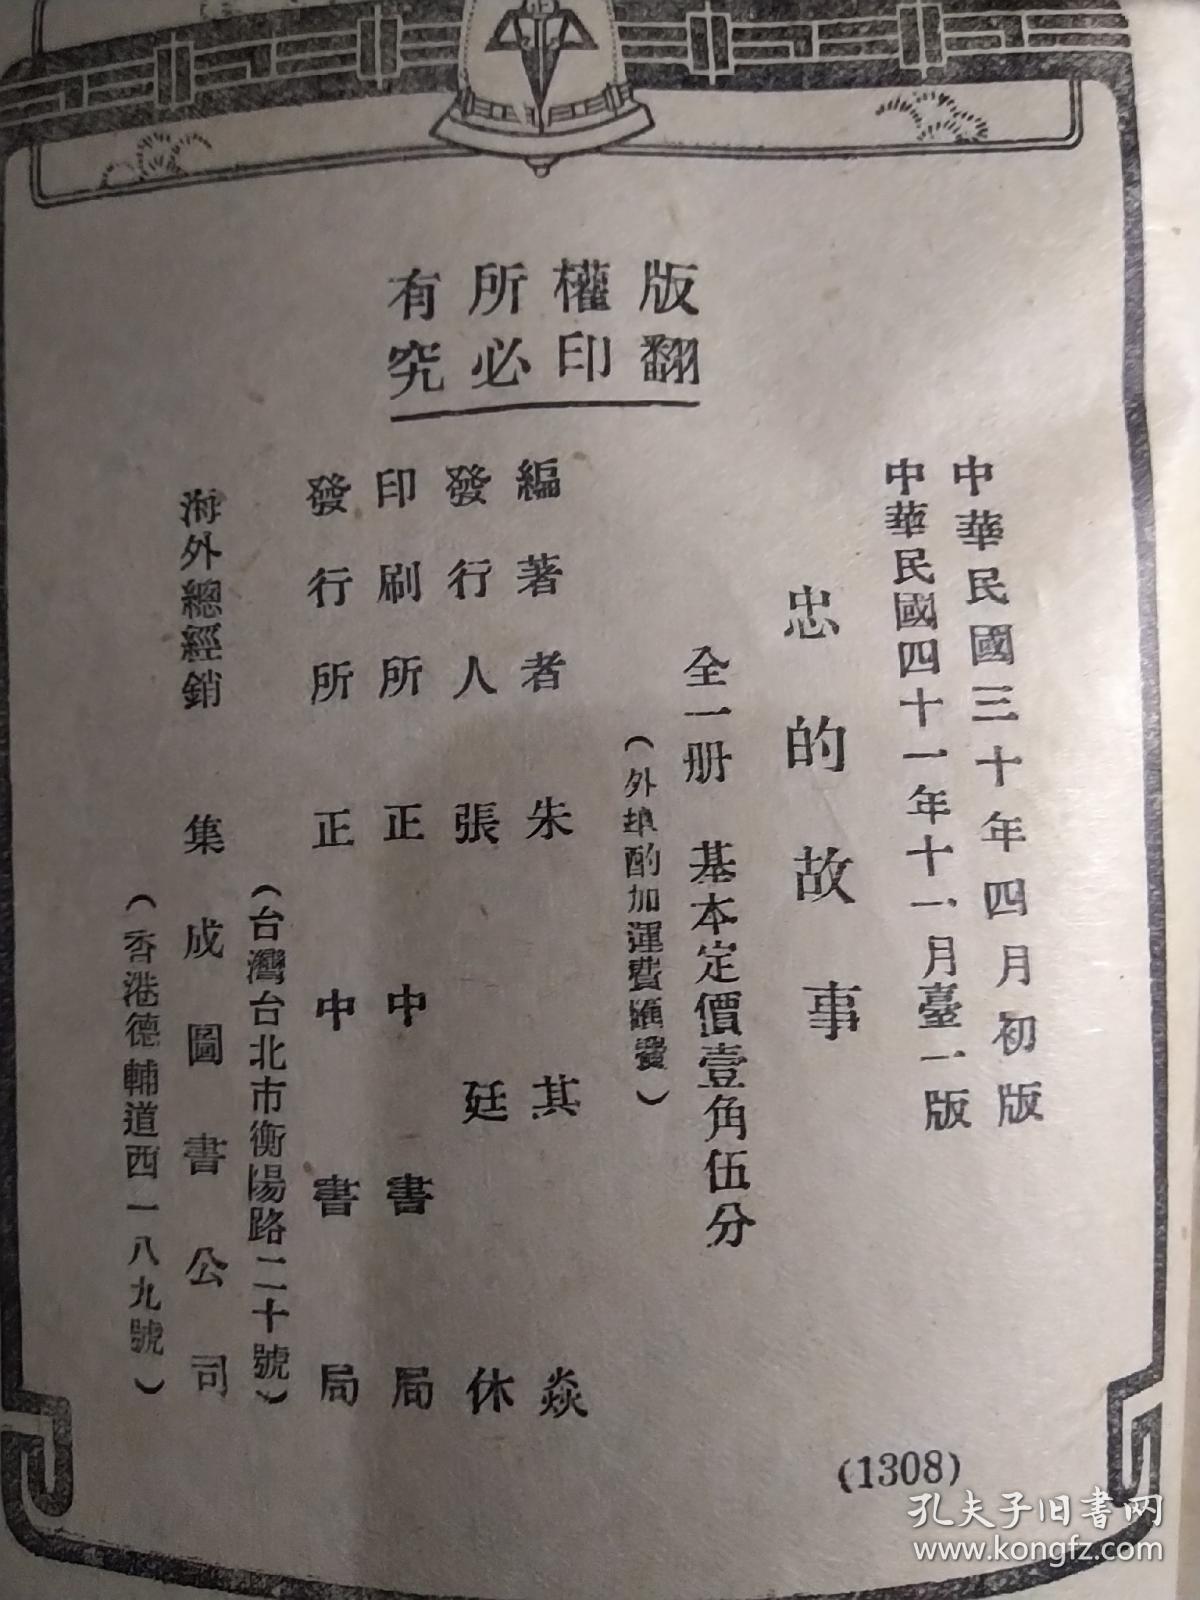 版權所有
翻印必究
中華民國三十年四月初版
中華民國四十一年十一月臺一版
忠的故事
全一册 基本定價壹角伍分
（外埠酌加運費匯費）
編著者 朱其焱
發行人 張廷休
印刷所 正中書局
發行所 正中書局
（台灣台北市衡陽路二十號）
海外總經銷 集成圖書公司
（香港德輔道西一八九號）
(1308)
孔夫子旧书网
www.kongfz.com